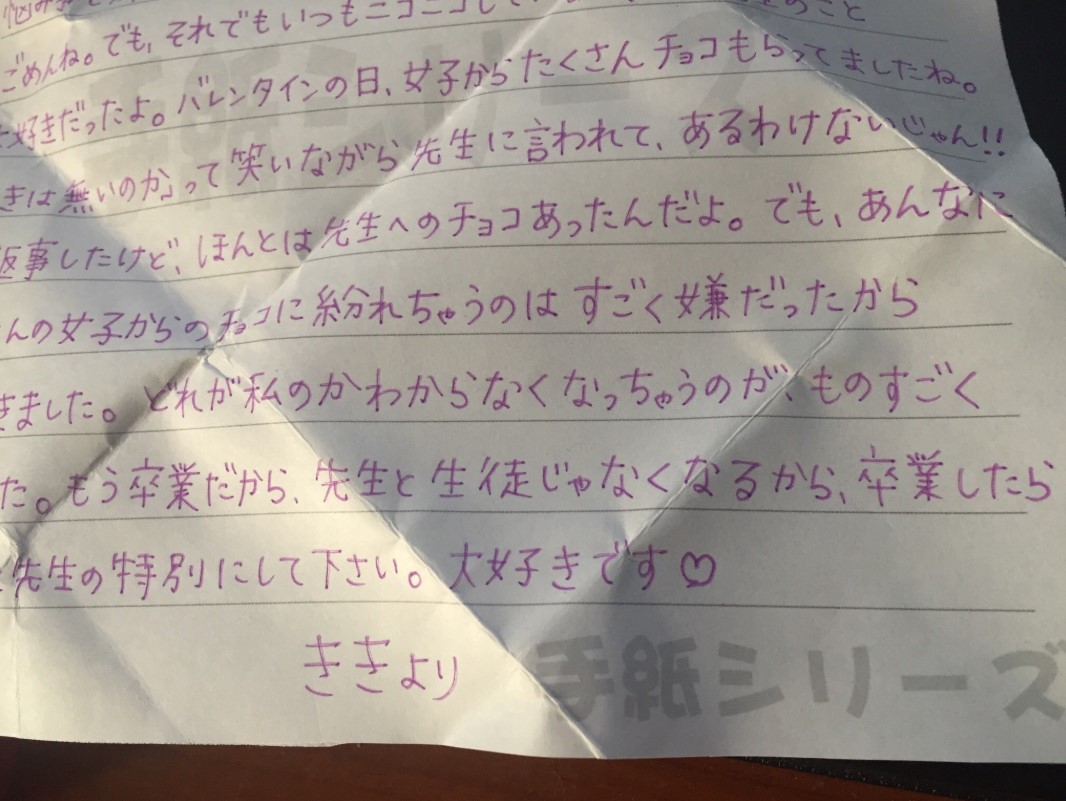 ごめんね。でも、それでもいつもニコニコして
大好きだったよ。バレンタインの日、女子からたくさんチョコもらってましたね。
きは無いのか」って笑いながら先生に言われて、あるわけないじゃん!!
返事したけど、ほんとは先生へのチョコあったんだよ。でも、あんなに
んの女子からのチョコに紛れちゃうのはすごく嫌だったから
きました。どれが私のかわからなくなっちゃうのが、ものすごく
た。もう卒業だから、先生と生徒じゃなくなるから、卒業したら
先生の特別にして下さい。大好きです♡
ききより
手紙シリーズ
手紙シリーズ